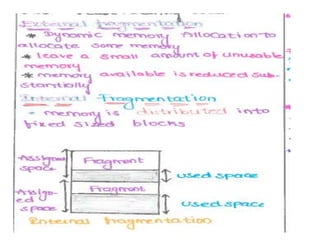 External fragmentation
* Dynamic memory Allocation to
allocate some memory
* leave a small amount of unusable
memory
* memory available is reduced sub-
stantially
Internal Fragmentation
* memory is distributed into
fixed sized blocks
Assigned
space
Fragment
used space
Assign-
ed space
Fragment
used space
Internal fragmentation